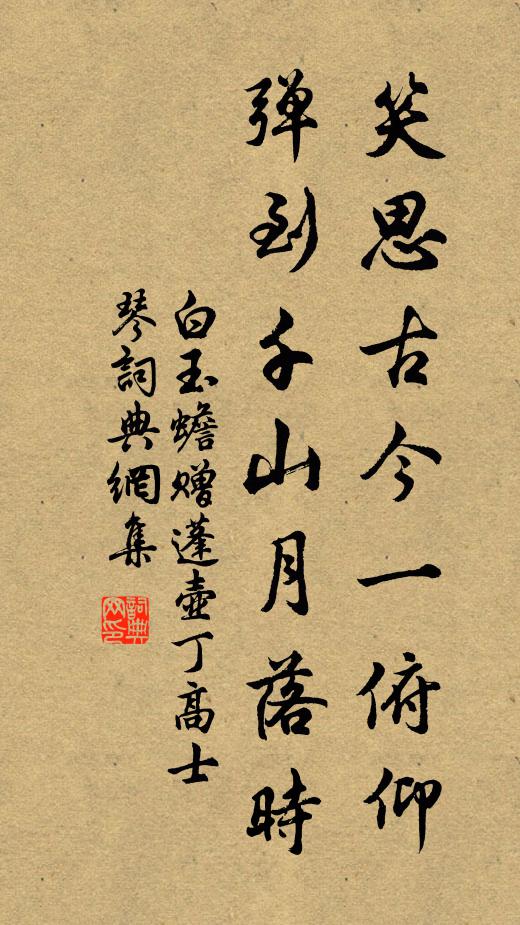 笑思古今一俯仰
弹到千山月落時
白玉蟾赠蓬壶丁高士
琴詞典網集
詞典网印